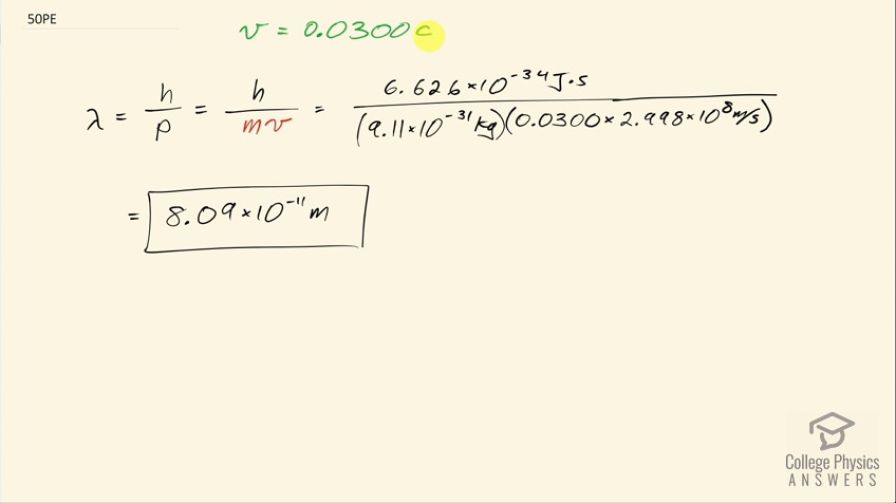 50PE
v = 0.0300 c
λ = h/p = h/mv = 6.626×10⁻³⁴ J·s / (9.11×10⁻³¹ kg)(0.0300 × 2.998×10⁸ m/s)
= 8.09×10⁻¹¹ m
College Physics
ANSWERS